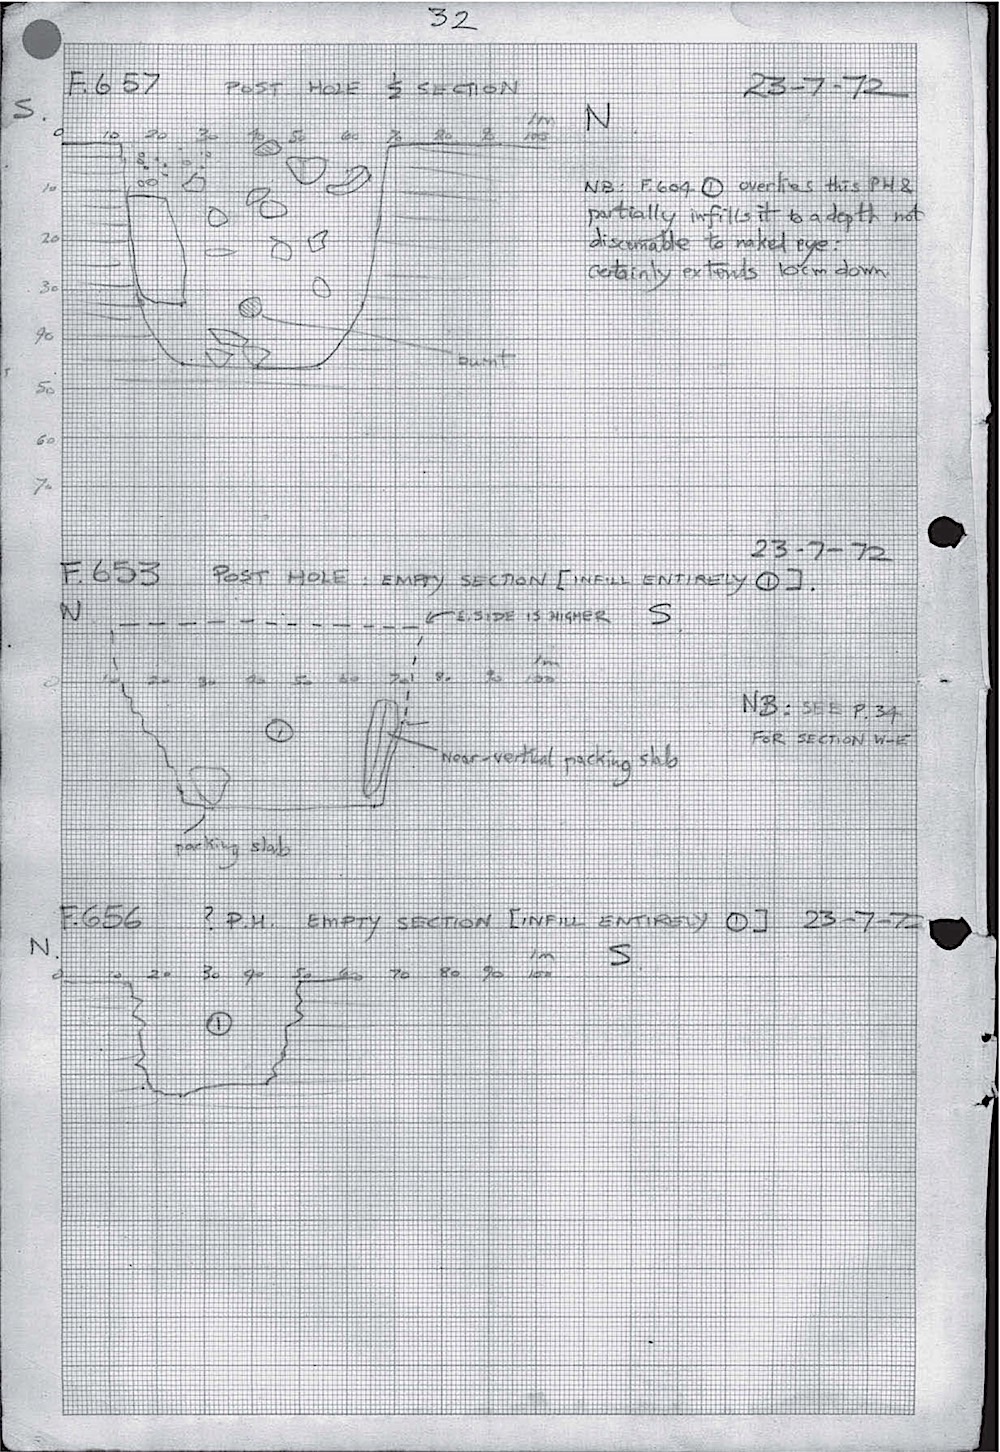 32
F.657 POST HOLE ½ SECTION 23-7-72
S. N
0 10 20 30 40 50 60 70 80 90 1m 100
10
20
30
40
50
60
70
NB: F.604 ① overlies this PH &
partially infills it to a depth not
discernable to naked eye:
certainly extends 10cm down
burnt
23-7-72
F.653 POST HOLE : EMPTY SECTION [INFILL ENTIRELY ①].
N E.SIDE IS HIGHER S
0 10 20 30 40 50 60 70 80 90 1m 100
①
NB: SEE P.34
FOR SECTION W-E
Near-vertical packing slab
packing slab
F.656 ? P.H. EMPTY SECTION [INFILL ENTIRELY ①] 23-7-72
N. S
0 10 20 30 40 50 60 70 80 90 1m 100
①